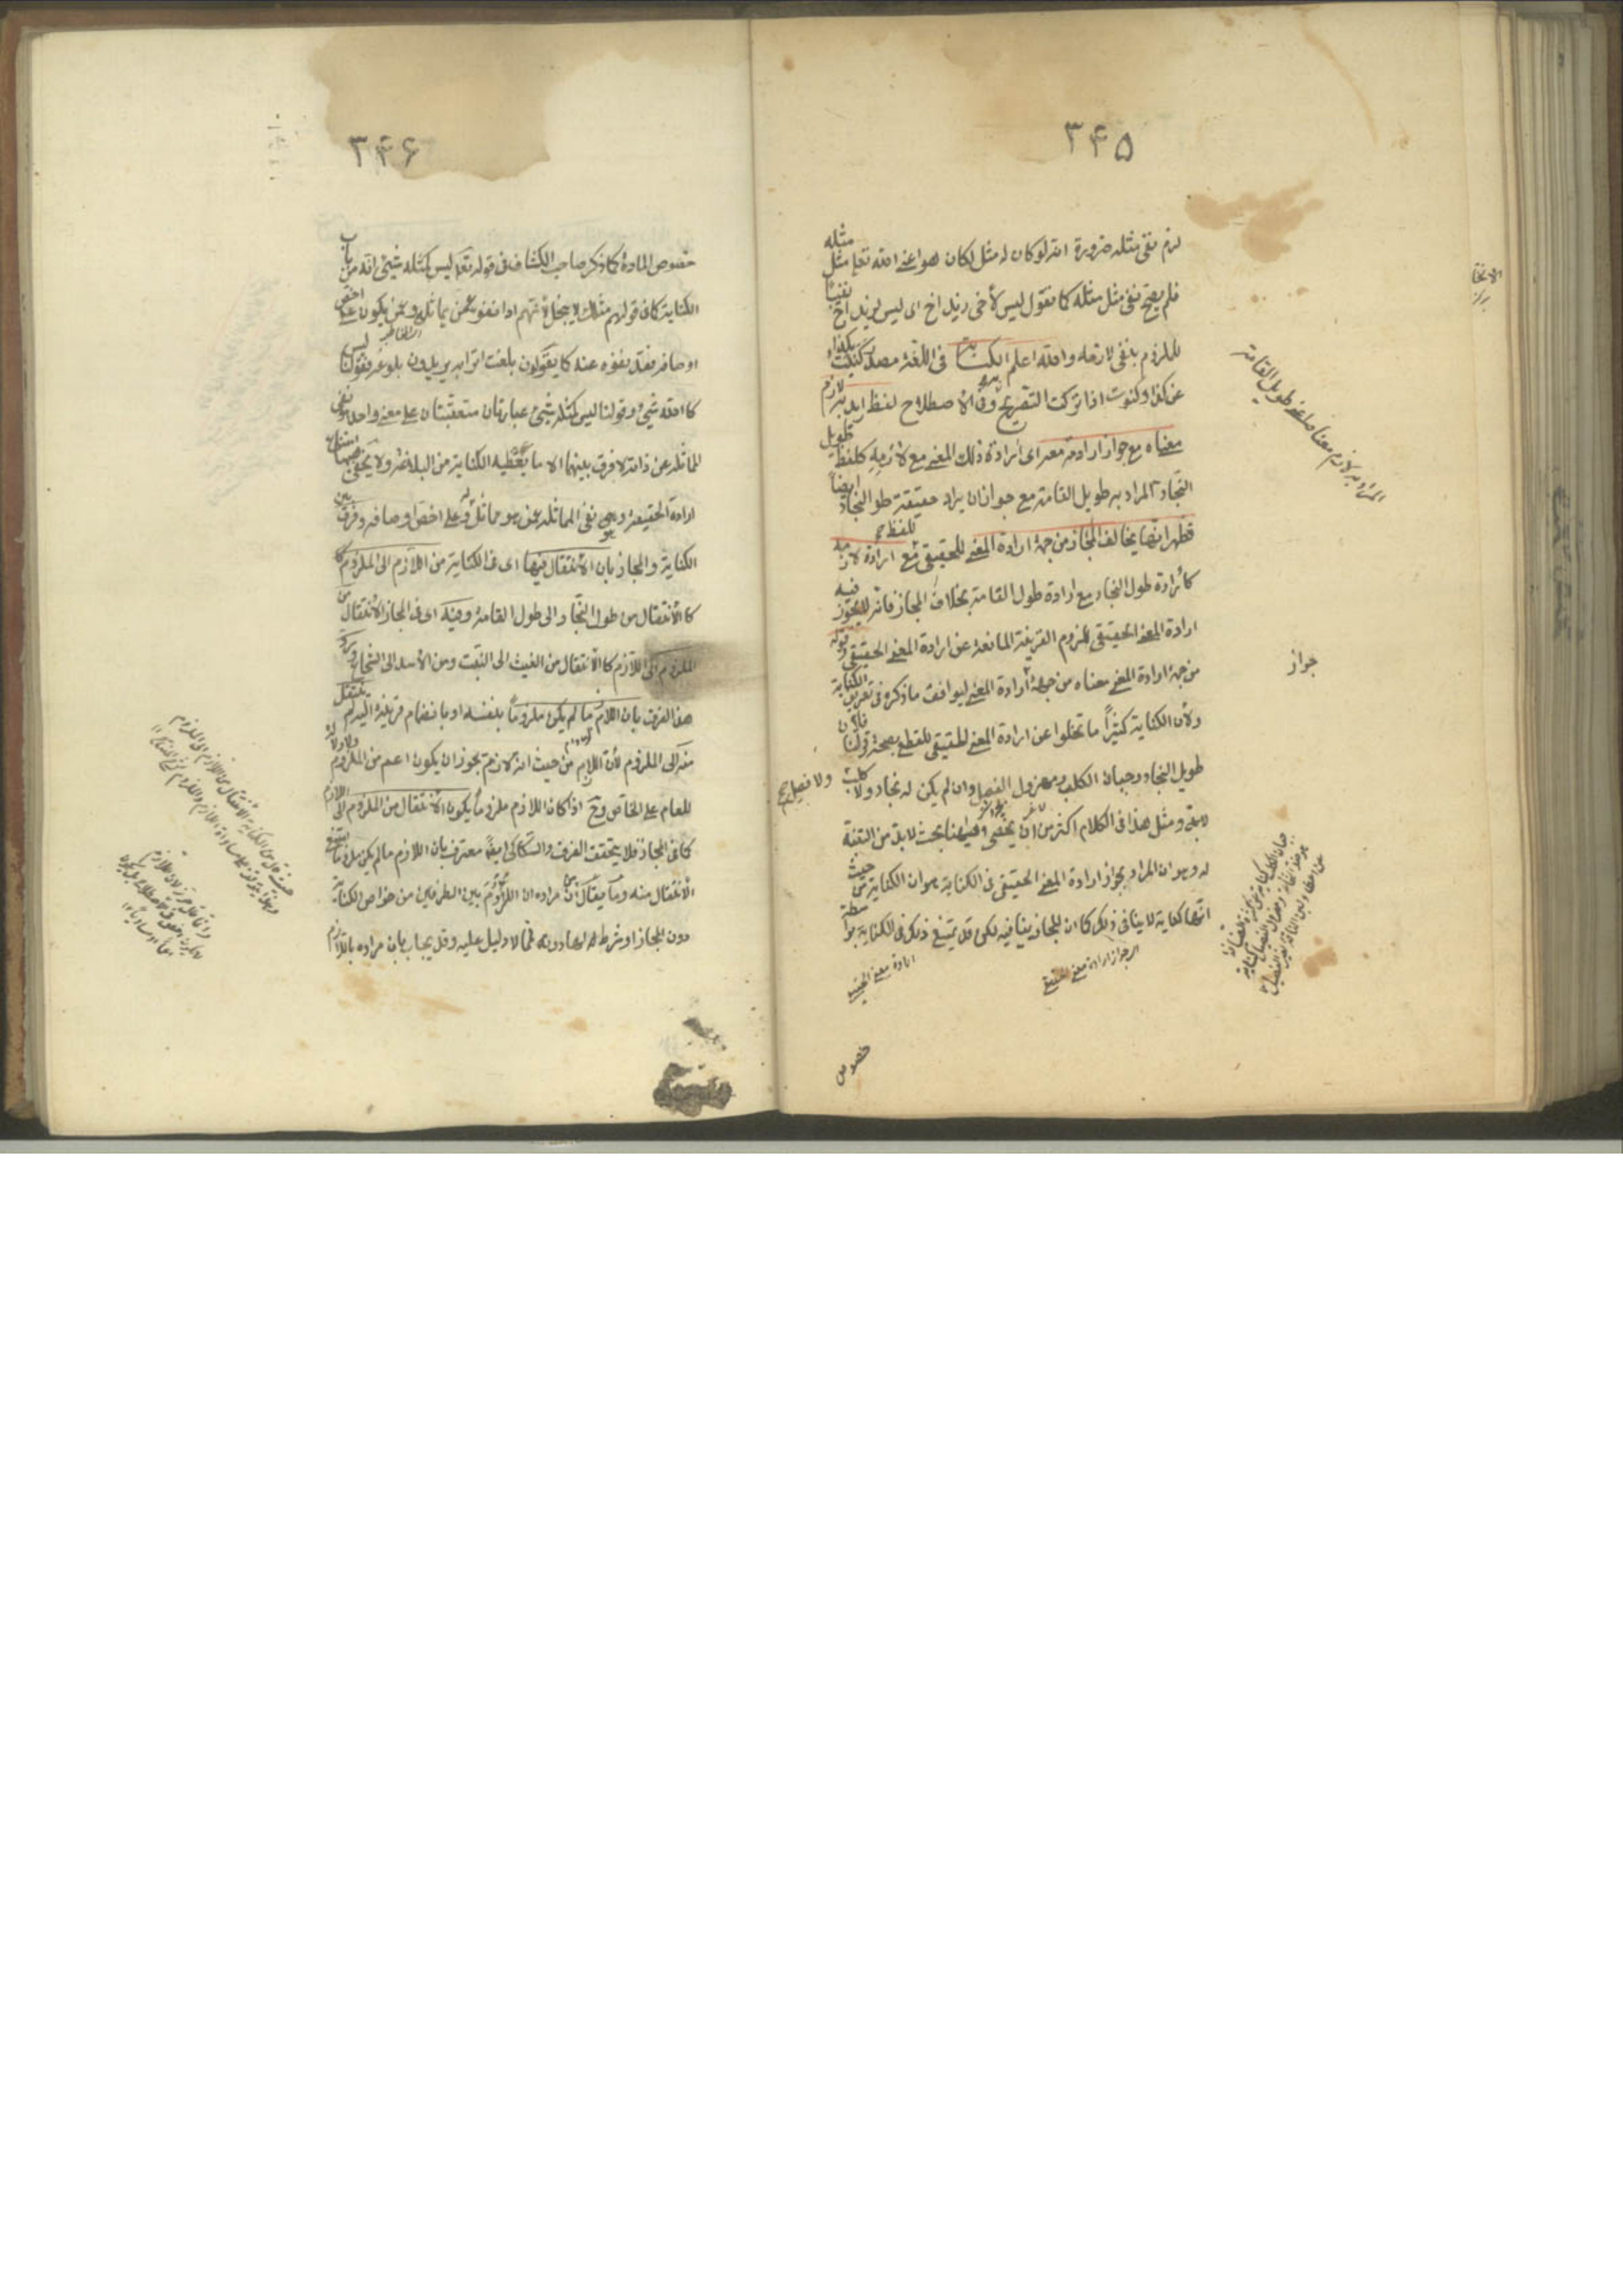 ٣۴۵
لزم نفى مثله ضرورة انه لو كان له مثل لكان هو اعنى الله تعا مثل مثله
فلم يصح نفى مثل مثله كما تقول ليس لأخى زيد اخ اى ليس لزيد اخ نفيًا
للملزوم بنفى لازمه والله اعلم الكناية فى اللغة مصدر كنيت بكذا
عن كذا وكنوت اذا تركت التصريح به وفى الاصطلاح لفظ اريد به لازم
معناه مع جواز ارادته معه اى ارادة ذلك المعنى مع لازمه كلفظ طويل
النجاد المراد به طويل القامة مع جواز ان يراد حقيقة طول النجاد ايضًا
فظهر انها يخالف المجاز من جهة ارادة المعنى الحقيقى للفظ مع ارادة لازمه
كارادة طول النجاد مع ارادة طول القامة بخلاف المجاز فانه لا يجوز فيه
ارادة المعنى الحقيقى للزوم القرينة المانعة عن ارادة المعنى الحقيقى وقوله
من جهة ارادة المعنى معناه من جهة جواز ارادة المعنى ليوافق ما ذكره فى تعريف الكناية
ولأن الكناية كثيرًا ما تخلوا عن ارادة المعنى الحقيقى للقطع بصحة قولنا فلان
طويل النجاد وجبان الكلب ومهزول الفصيل وان لم يكن له نجاد ولا كلب ولا فصيل صح
ومثل هذا فى الكلام اكثر من ان يحصى وههنا بحث لابد من التنبه
له وهو ان المراد بجواز ارادة المعنى الحقيقى فى الكناية هو ان الكناية من حيث
انها كناية لا ينافى ذلك كما ان المجاز ينافيه لكن قد يمتنع ذلك فى الكناية بواسطة
خصوص
المراد به لازم معناه اعنى طويل القامة
جواز
٣۴۶
خصوص المادة كما ذكر صاحب الكشاف فى قوله تعا ليس كمثله شئ انه من باب
الكناية كما فى قولهم مثلك لا يبخل لأنهم اذا نفوه عمن يماثله وعمن يكون على اخص
اوصافه فقد نفوه عنه كما يقولون بلغت اترابه يريدون بلوغه فقولنا ليس
كالله شئ وقولنا ليس كمثله شئ عبارتان متعقبتان على معنى واحد وهو نفى
المماثلة عن ذاته لا فرق بينهما الا ما يعطيه الكناية من البلاغة ولا يخفى ههنا امتناع
ارادة الحقيقة وهى نفى المماثلة عمن هو مماثل له وعلى اخص اوصافه وفرق بين
الكناية والمجاز بان الانتقال فيها اى فى الكناية من اللازم الى الملزوم
كالانتقال من طول النجاد الى طول القامة وفيه اى فى المجاز الانتقال من
الملزوم الى اللازم كالانتقال من الغيث الى النبت ومن الأسد الى الشجاع ورد
هذا الفرق بان اللازم ما لم يكن ملزومًا بنفسه او بانضمام قرينة اليه لم ينتقل
منه الى الملزوم لأن اللازم من حيث انه لازم يجوز ان يكون اعم من الملزوم ولا دلالة
للعام على الخاص وح اذا كان اللازم ملزومًا يكون الانتقال من الملزوم الى اللازم
كما فى المجاز فلا يتحقق الفرق والسكاكى ايضًا معترف بان اللازم ما لم يكن ملزومًا يمتنع
الانتقال منه وما يقال ان مراده ان اللزوم بين الطرفين من خواص الكناية
دون المجاز او شرط لها دونه فما لا دليل عليه وقد يجاب بان مراده باللازم